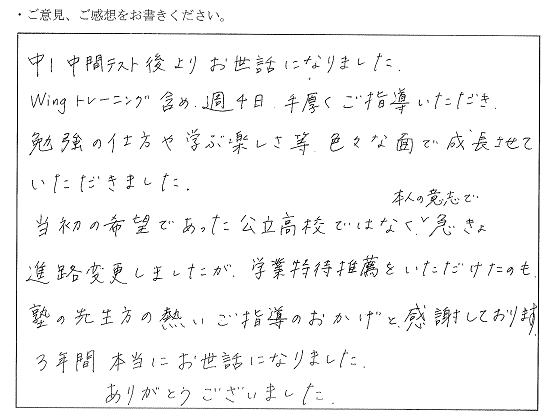 ・ご意見、ご感想をお書きください。
中1中間テスト後よりお世話になりました。
Wingトレーニング含め、週4日、手厚くご指導いただき、
勉強の仕方や学ぶ楽しさ等、色々な面で成長させて
いただきました。
当初の希望であった公立高校ではなく、本人の意志で急きょ
進路変更しましたが、学業特待推薦をいただけたのも、
塾の先生方の熱いご指導のおかげと、感謝しております。
3年間本当にお世話になりました。
ありがとうございました。